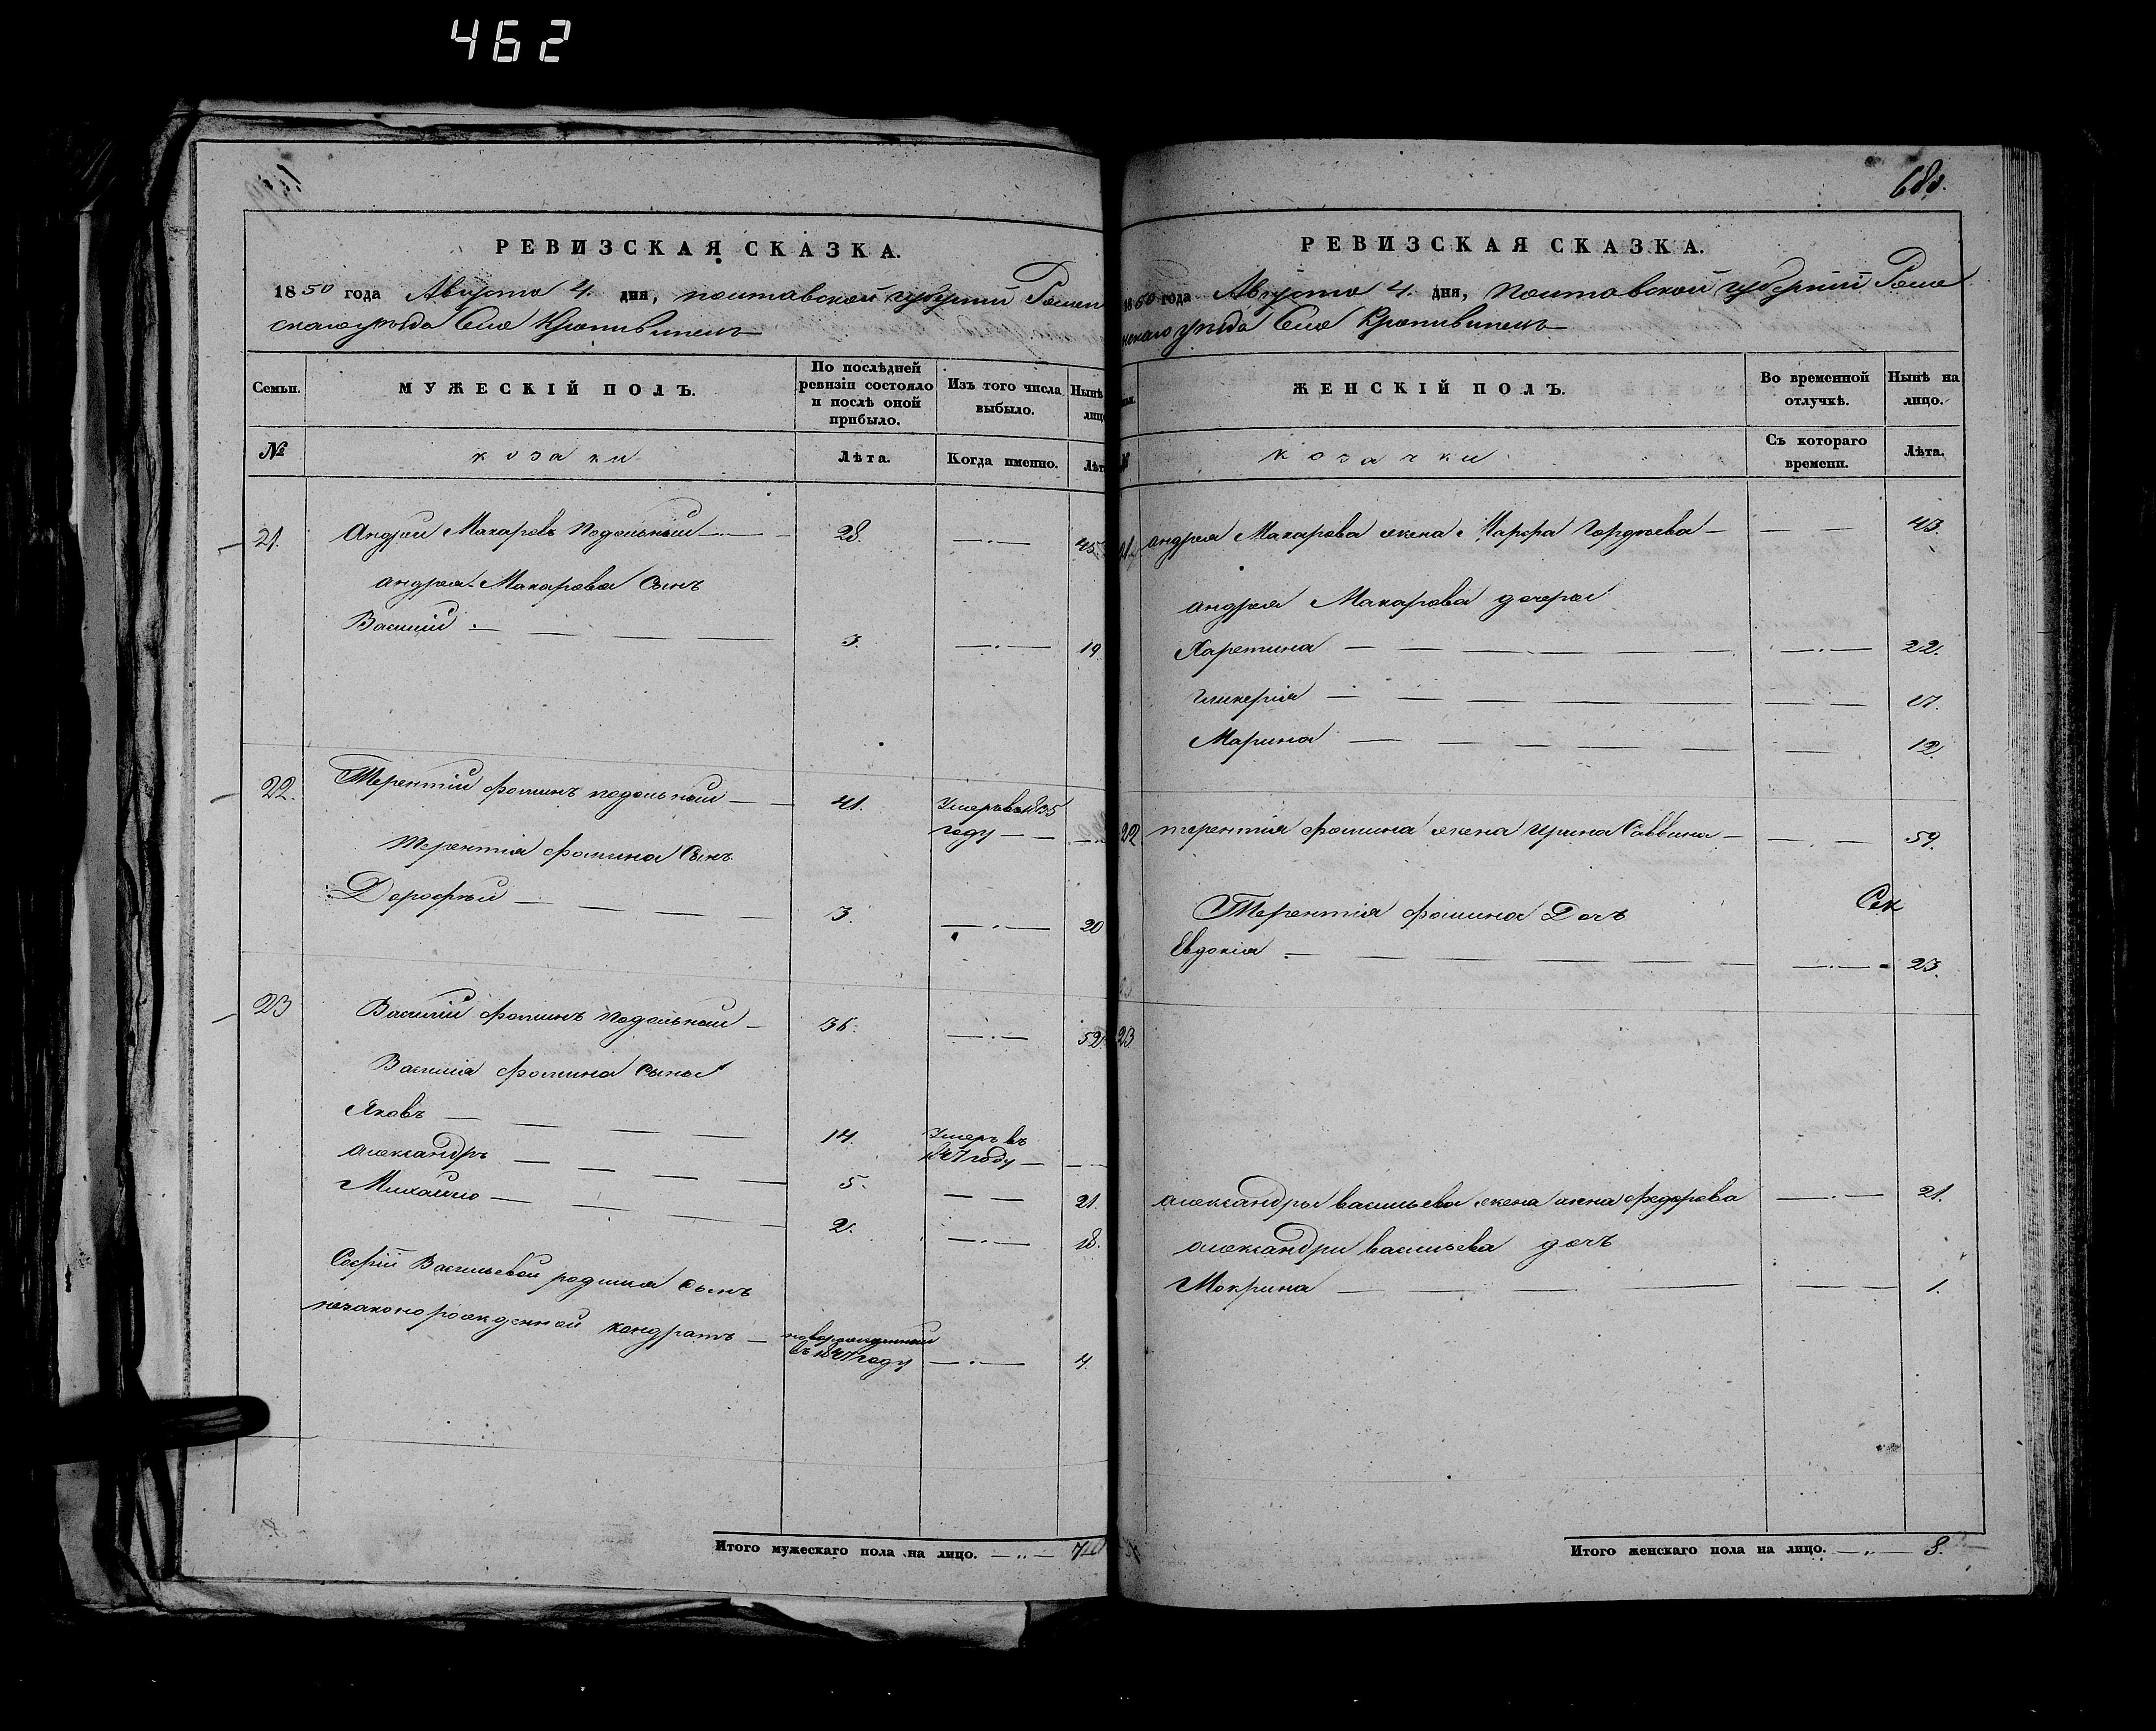 462
РЕВИЗСКАЯ СКАЗКА.
1850 года Августа 4. дня, полтавской губерніи Ромен
скаго уезда Село Кропивинец
Семьи.
МУЖЕСКІЙ ПОЛЪ.
По послѣдней ревизіи состояло и послѣ оной прибыло.
Изъ того числа выбыло.
Нынѣ лиц
№
козаки
Лѣта.
Когда именно.
Лѣт
21. Андрей Макаровъ подольный 28. 45.
андрея Макарова Сынъ
Василій 3. 19.
22. Терентій фоминъ подольный 41. Умеръ въ 1835 году
терентія фомина Сынъ
Дорофѣй 3. 20
23 Василій фоминъ подольный 36. 52.
Василія фомина Сыны
Яковъ 14. Умеръ въ 1847 году
александръ 5. 21.
Михайло 2. 18.
Софіи Васильевой родился Сынъ
незаконорожденной кондратъ новорожденный въ 1847 году 4.
Итого мужескаго пола на лицо. 7
680.
РЕВИЗСКАЯ СКАЗКА.
1850 года Августа 4. дня, полтавской губерніи Роме
нскаго уезда Село Кропивинец
ЖЕНСКІЙ ПОЛЪ.
Во временной отлучкѣ.
Нынѣ на лицо.
козачки
Съ котораго времени.
Лѣта.
21. андрея Макарова жена Марфа Гордѣева 43.
андрея Макарова дочеры
Харетина 22.
гликерія 17.
Марина 12.
22 терентія фомина жена ирина Саввина 59.
Сек
Терентія фомина Дочъ
Евдокія 23.
23
александры васильева жена анна федорова 21.
александри васильева дочъ
Мокрина 1.
Итого женскаго пола на лицо. 8.